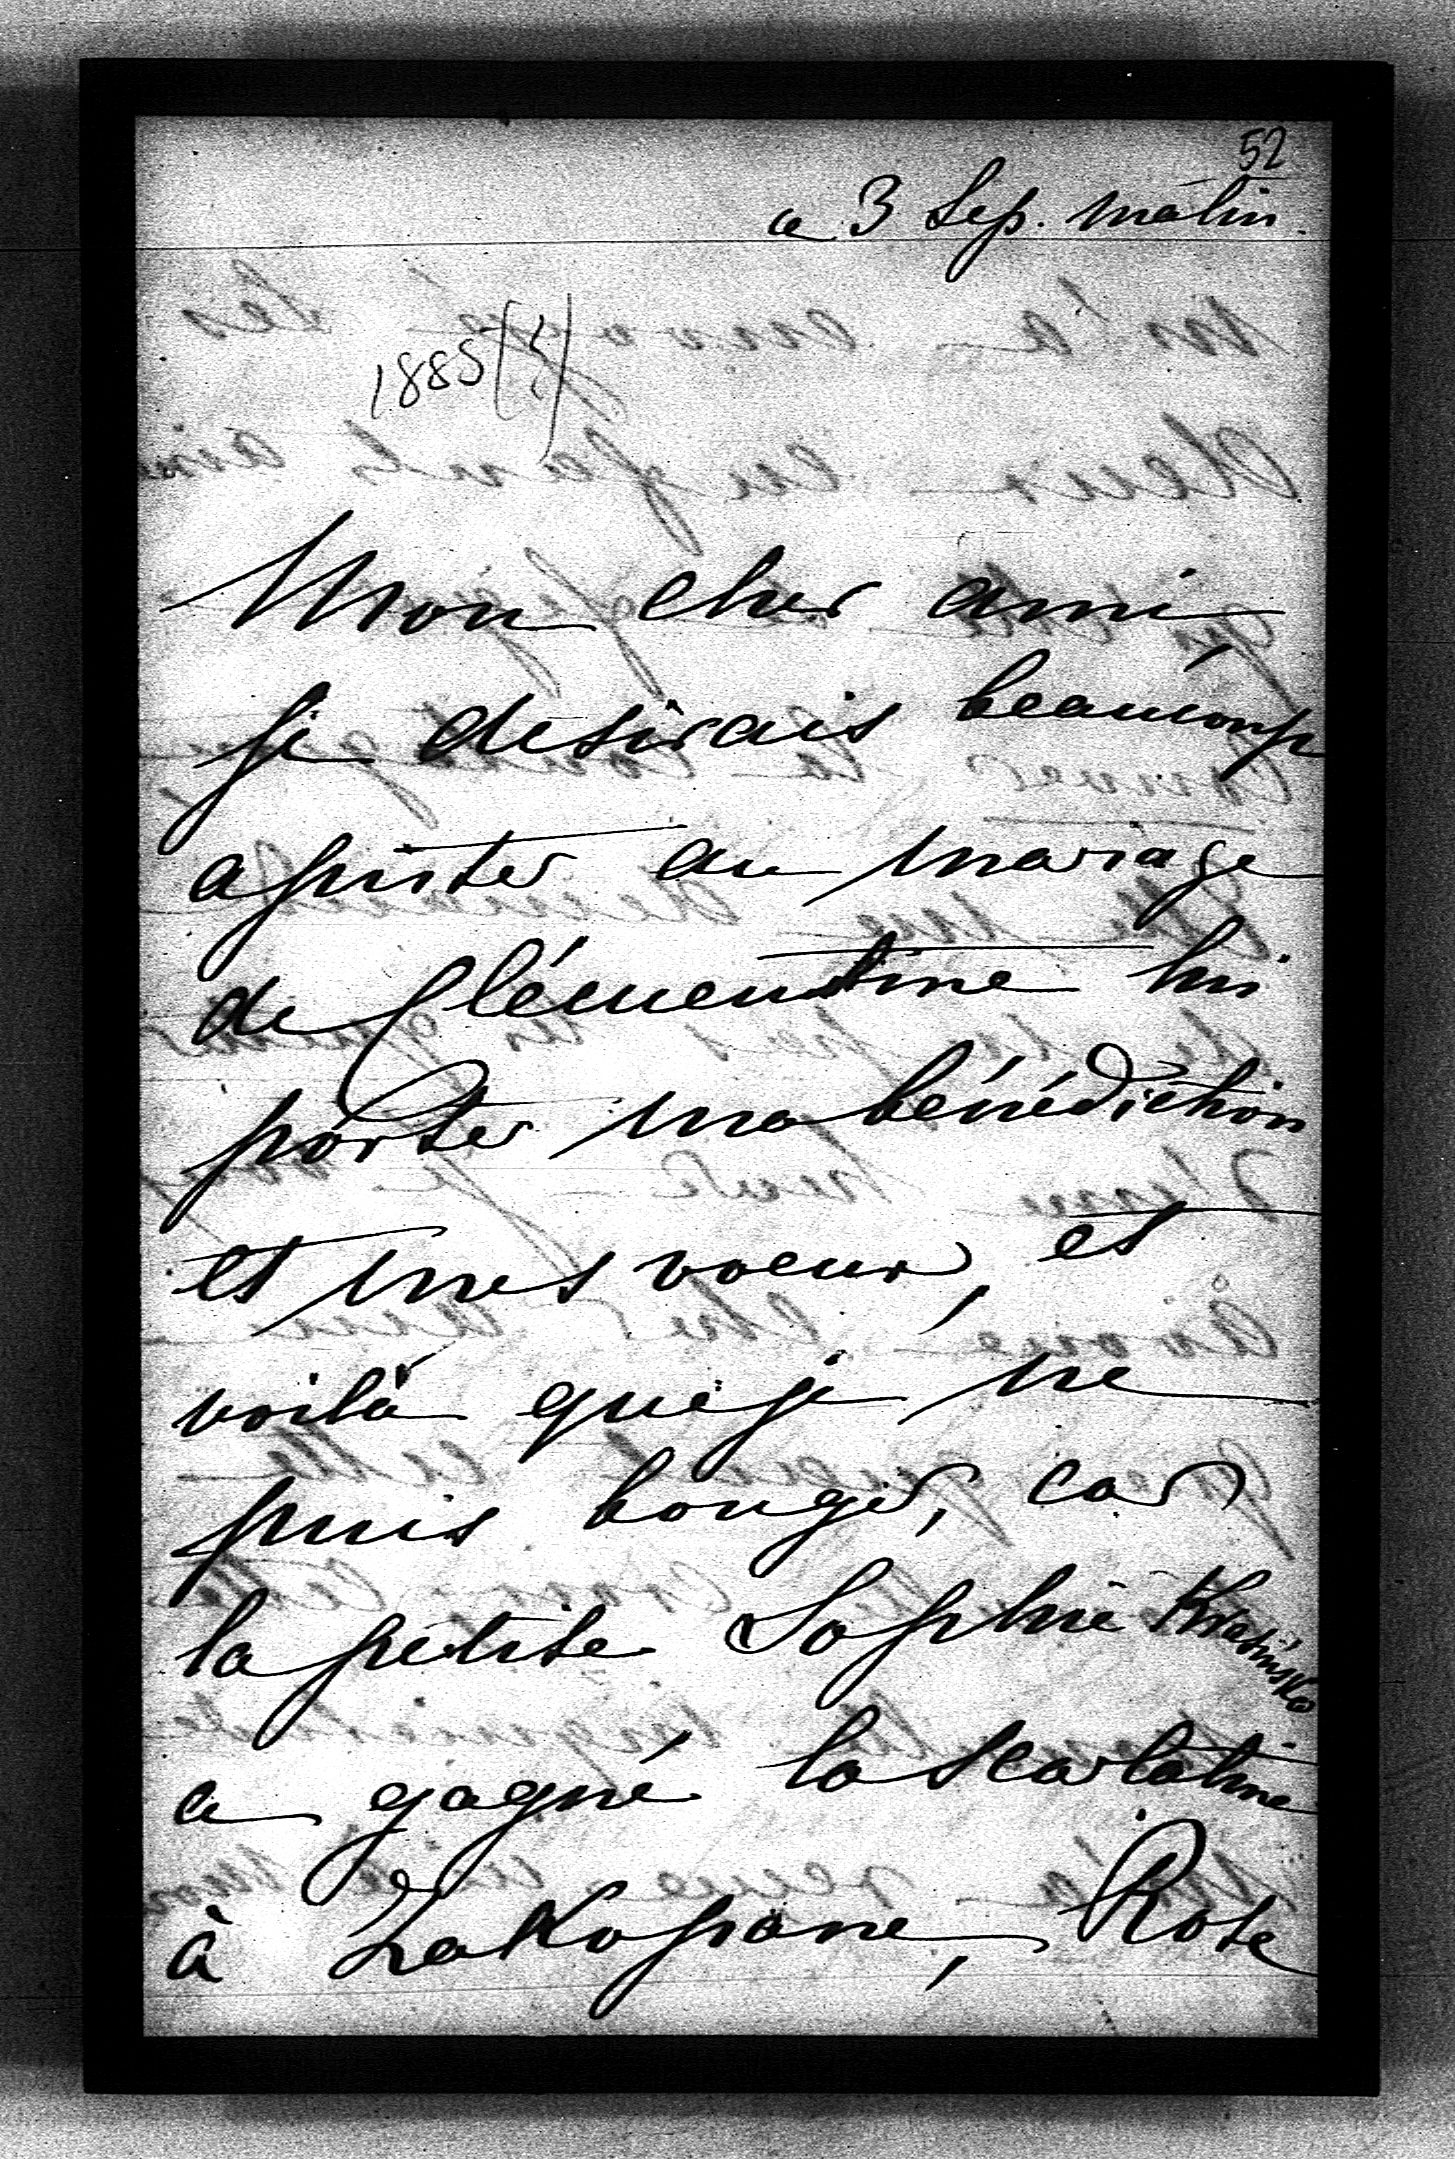 52
ce 3 Sep. matin.
1885 (?)
Mon cher ami,
je desirais beaucoup
assister au mariage
de Clémentine lui
porter ma bénédiction
et mes voeux, et
voilà que je ne
puis bouger, car
la petite Sophie Krasińska
a gagné la scarlatine
à Zakopane, Rose